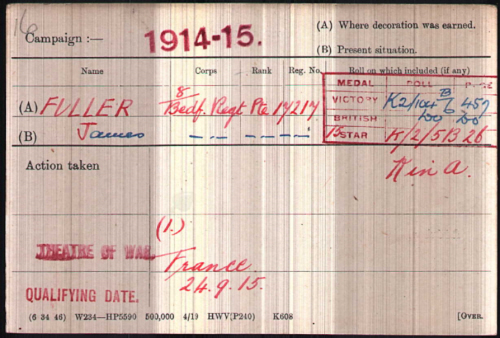 Campaign :— 1914-15.
(A) Where decoration was earned.
(B) Present situation.
Name Corps Rank Reg. No. Roll on which included (if any)
MEDAL ROLL PAGE
(A) FULLER 8/Bedf. Regt Pte 17217
VICTORY K2/104 B 457
(B) James —"— —"—
BRITISH DO DO
15 STAR K/2/5B 26
Action taken
K in A.
THEATRE OF WAR.
(1.)
France
QUALIFYING DATE.
24.9.15.
(6 34 46) W234—HP5590 500,000 4/19 HWV(P240) K608 [OVER.